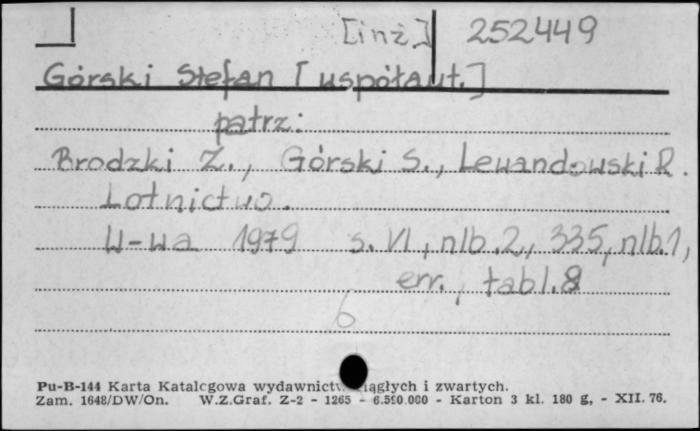 [inż.] 252449
Górski Stefan [współaut.]
patrz:
Brodzki Z., Górski S., Lewandowski R.
Lotnictwo.
W-wa 1979 s. VI, nlb.2, 335, nlb.1,
err., tabl.8
6
Pu-B-144 Karta Katalogowa wydawnictw ciągłych i zwartych.
Zam. 1648/DW/On. W.Z.Graf. Z-2 - 1265 - 6.590.000 - Karton 3 kl. 180 g, - XII. 76.